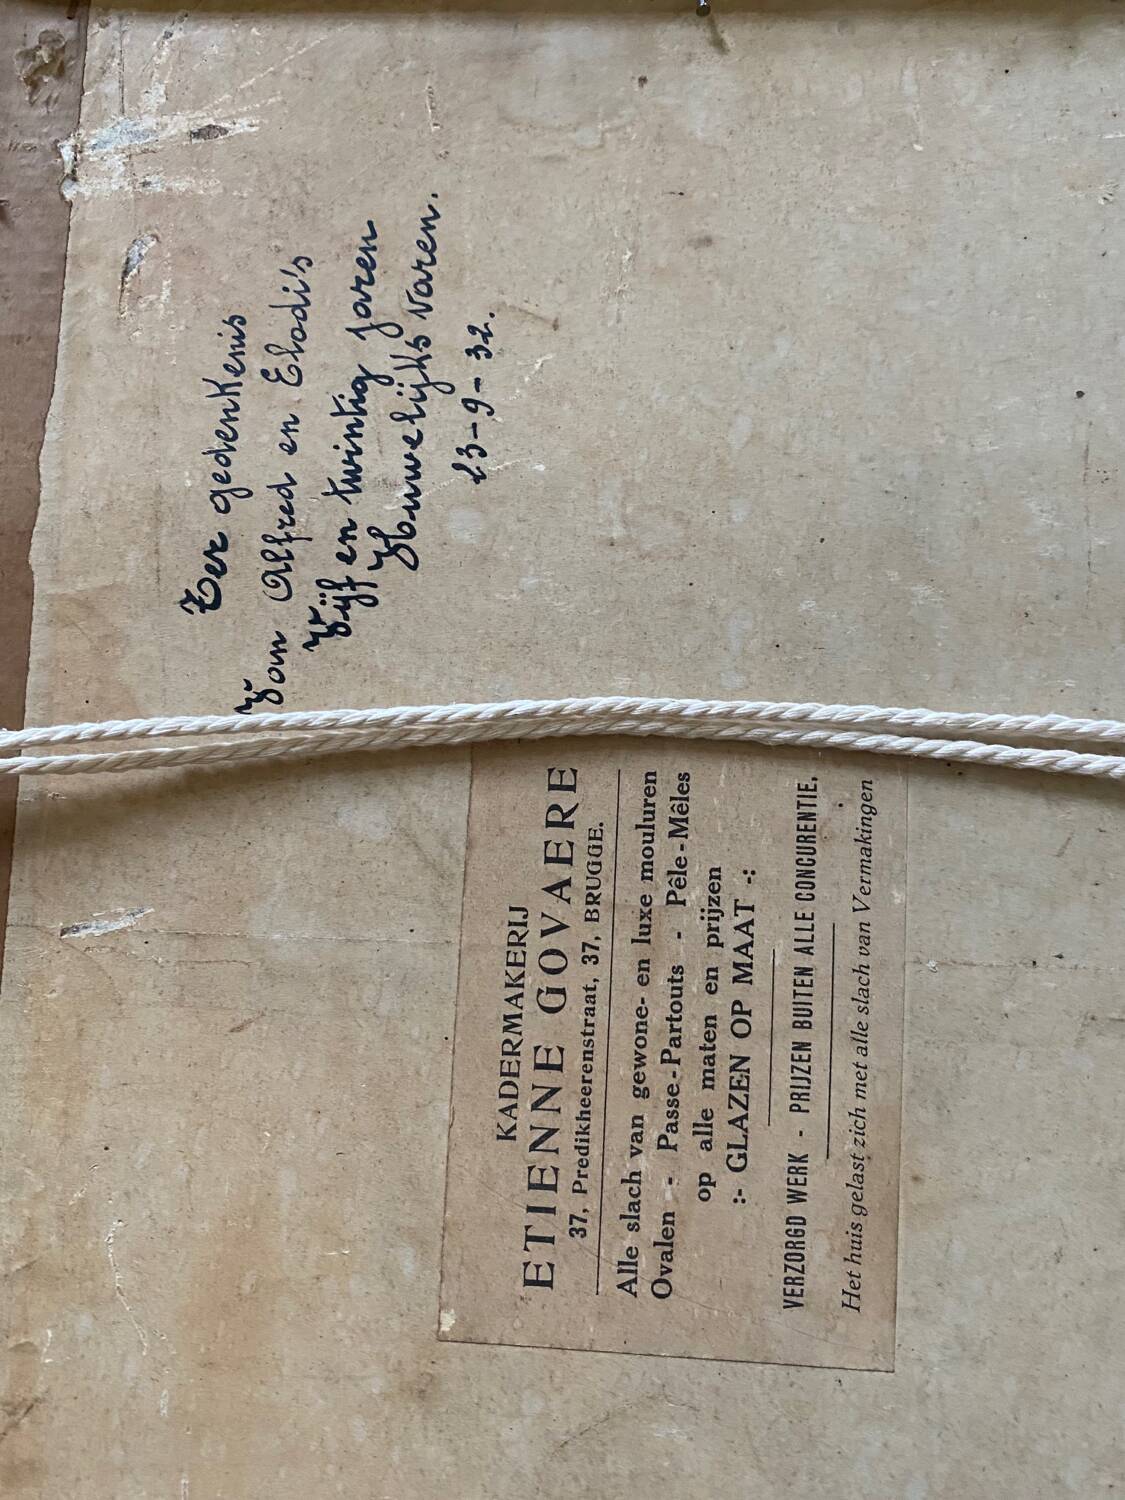 Ter gedenkenis
Van Alfred en Elodi's
Vijf en twintig jaren
Huwelijks varen.
23-9-32.
KADERMAKERIJ
ETIENNE GOVAERE
37, Predikheerenstraat, 37, BRUGGE.
Alle slach van gewone- en luxe mouluren
Ovalen - Passe-Partouts - Pêle-Mêles
op alle maten en prijzen
:- GLAZEN OP MAAT -:
VERZORGD WERK - PRIJZEN BUITEN ALLE CONCURENTIE.
Het huis gelast zich met alle slach van Vermakingen